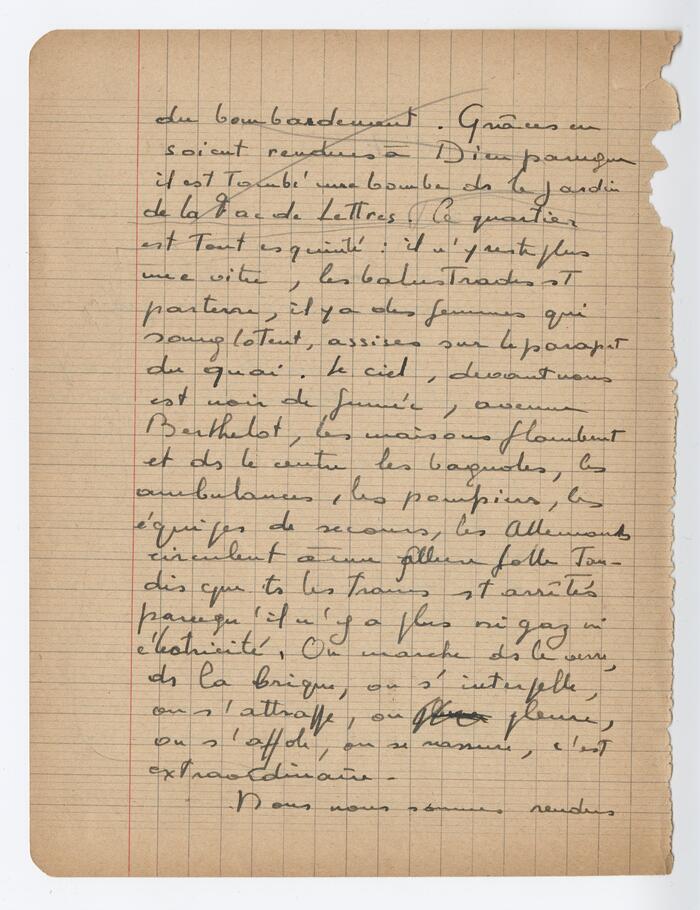 du bombardement. Grâces en
soient rendues à Dieu parcequ
il est Tombé une bombe ds le jardin
de la Fac de Lettres. Ce quartier
est Tout esquinté : il n'y reste plus
une vitre, les balustrades st
parterre, il y a des femmes qui
sanglotent, assises sur le parapet
du quai. Le ciel, devant nous
est noir de fumée, avenue
Berthelot, les maisons flambent
et ds le centre les bagnoles, les
ambulances, les pompiers, les
équipes de secours, les Allemands
circulent à une allure folle Tan-
dis que ts les Trams st arrêtés
parcequ'il n'y a plus ni gaz ni
électricité. On marche ds le verre,
ds la brique, on s'interpelle,
on s'attrappe, on pleure,
on s'affole, on se rassure, c'est
extraordinaire -
Nous nous sommes rendus